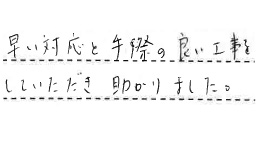 早い対応と手際の良い工事を
していただき助かりました。